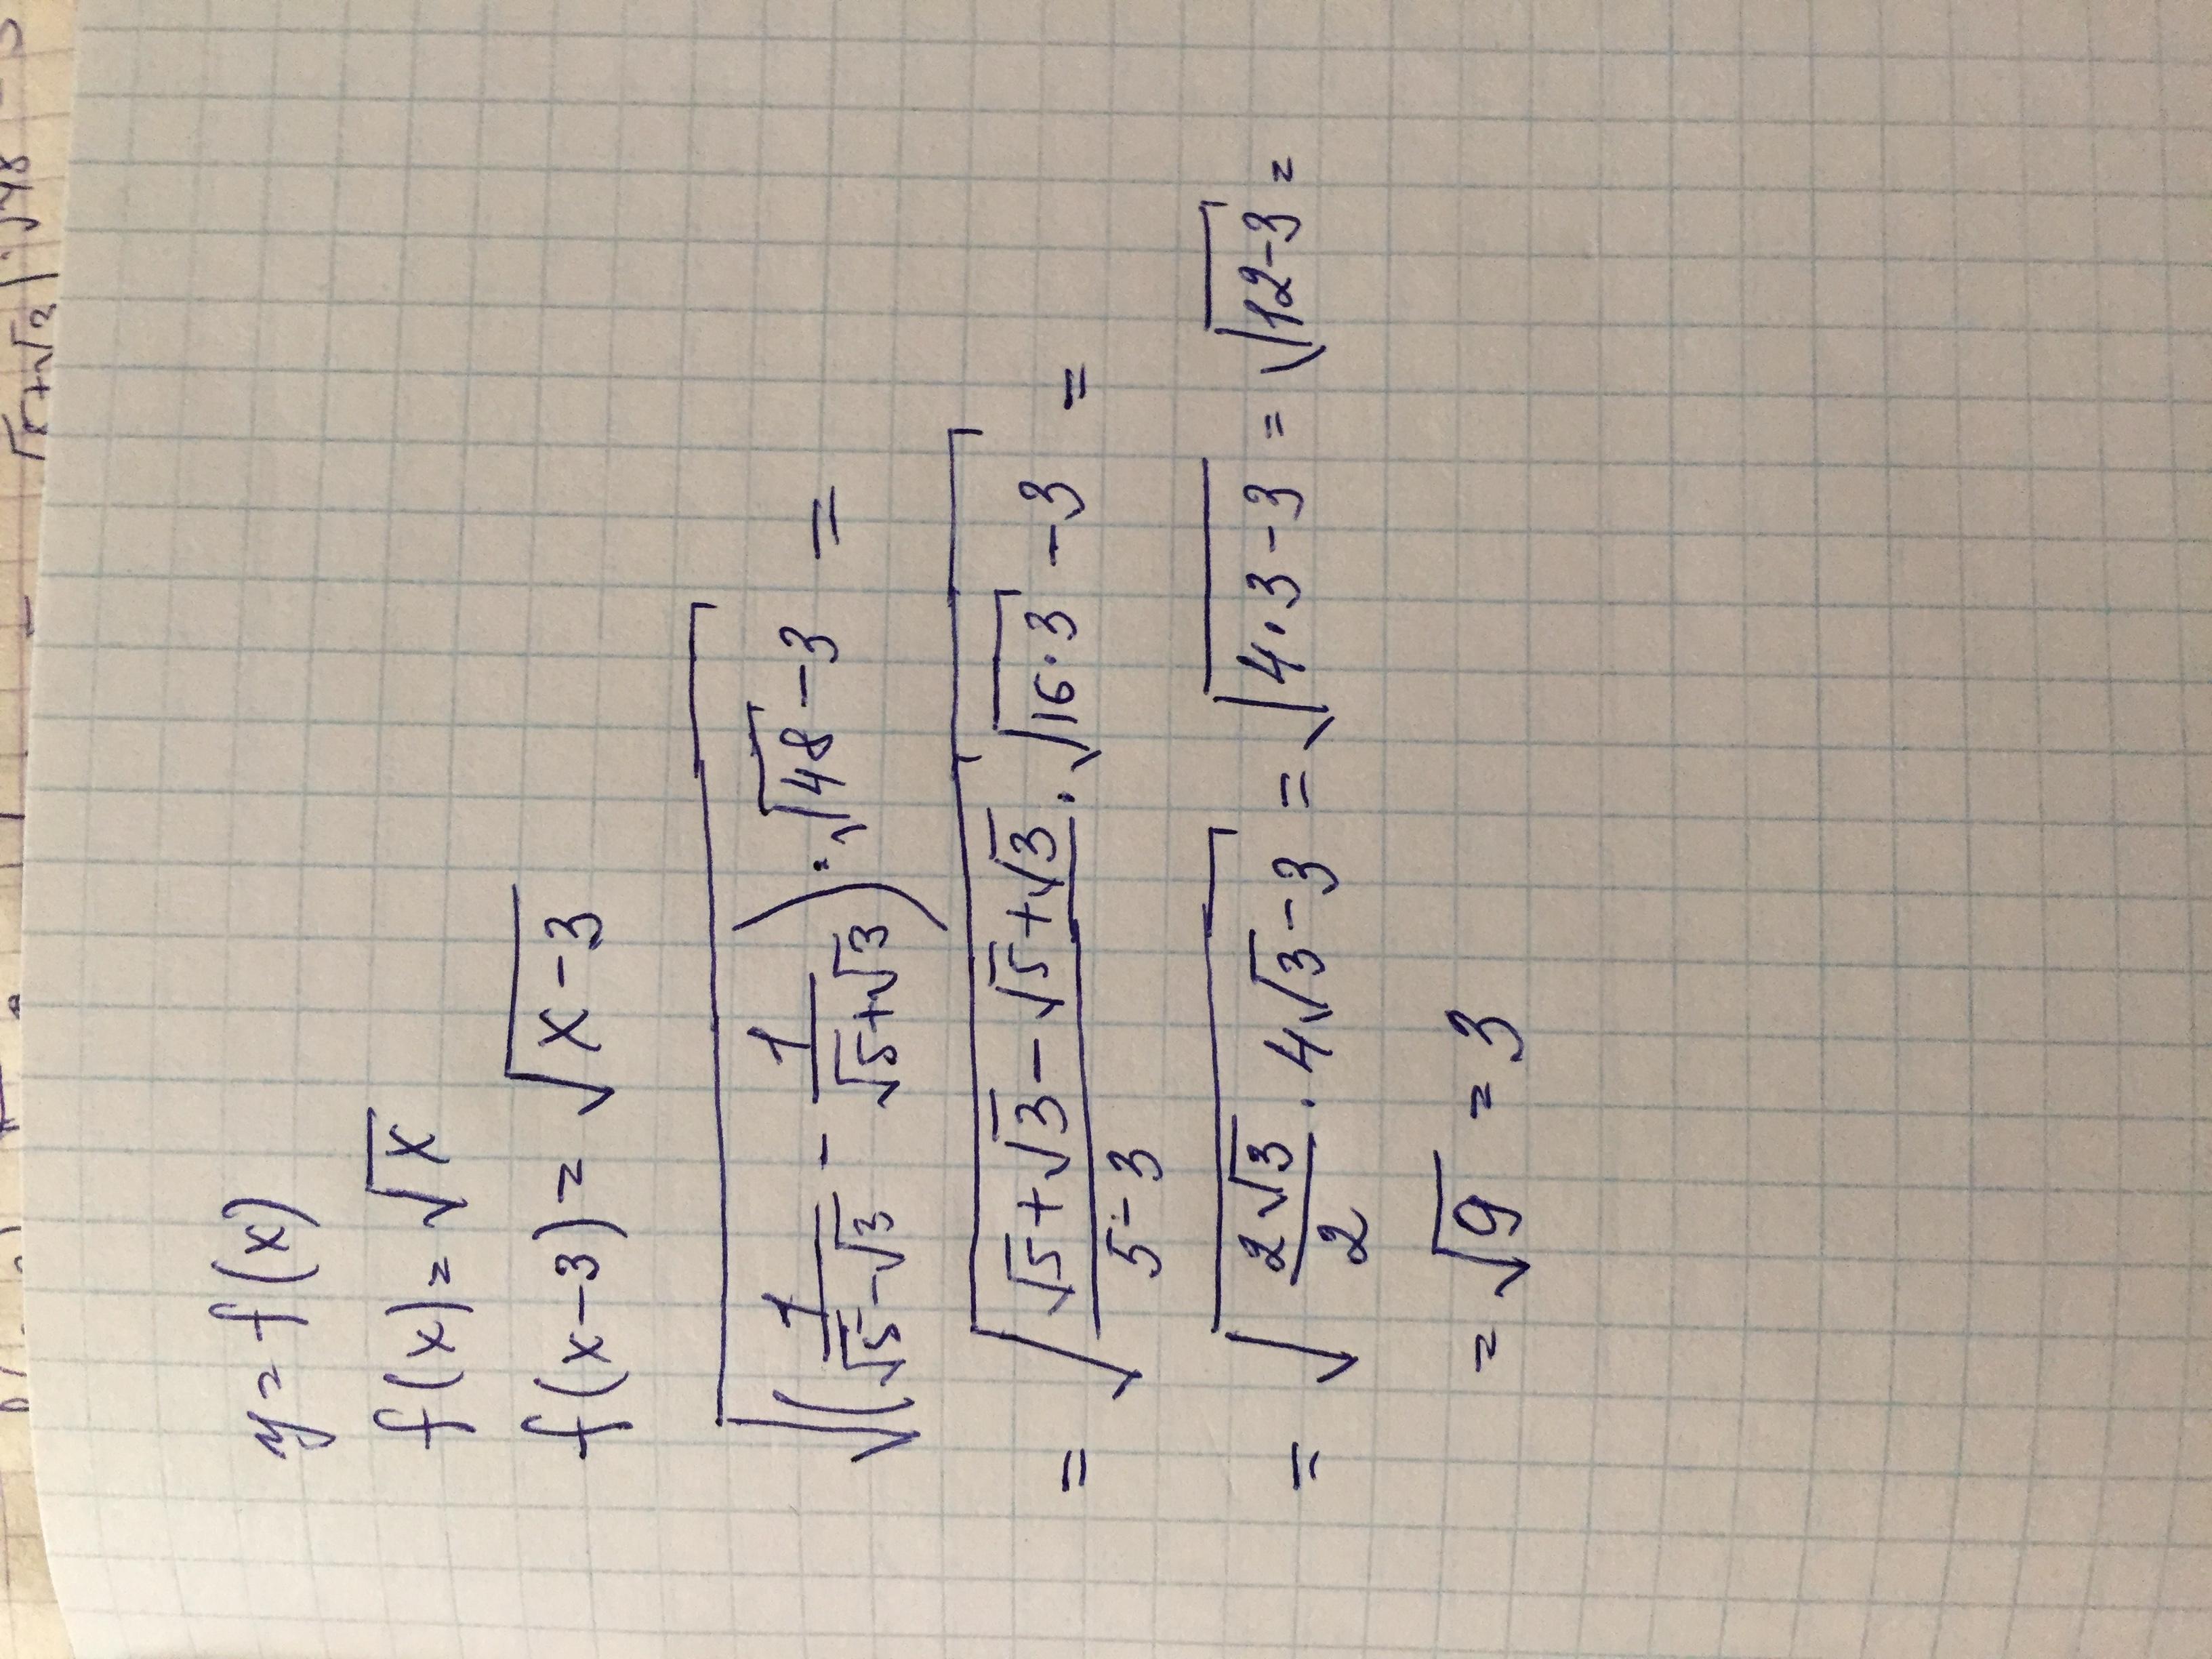 y = f(x)
f(x) = √x
f(x-3) = √(x-3)
√((1/(√5-√3) - 1/(√5+√3)) · √48 - 3) =
= √((√5+√3-√5+√3)/(5-3) · √(16·3) - 3) =
= √(2√3/2 · 4√3 - 3) = √(4·3-3) = √(12-3) =
= √9 = 3